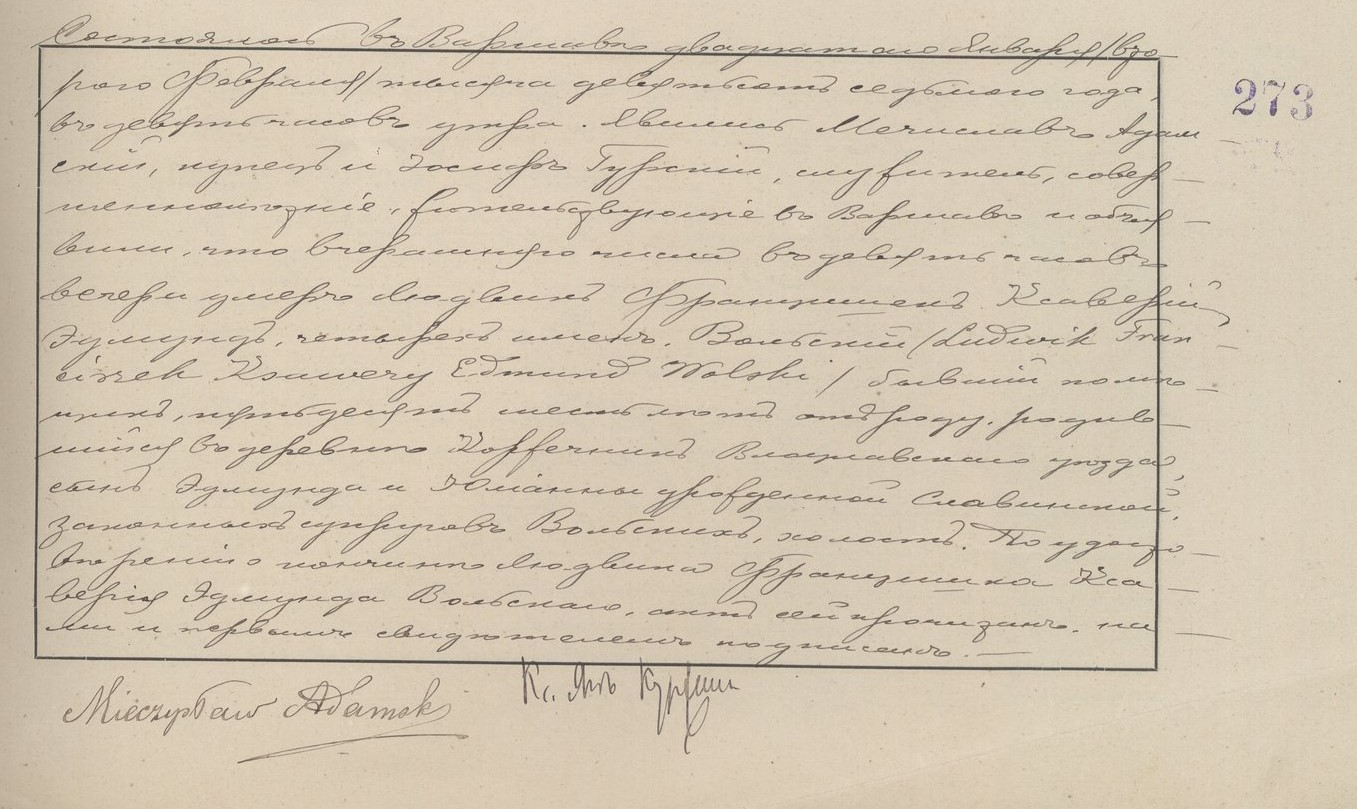 Состоялось въ Варшавѣ двадцатаго Января/вто
рого Февраля/тысяча девятьсотъ седьмого года,
въ девять часовъ утра. Явились Мечиславъ Адам
скій, купецъ и Іосифъ Гурскій, служитель, совер
шеннолѣтніе, жительствующіе въ Варшавѣ и объя
вили, что вчерашняго числа въ девять часовъ
вечера умеръ Людвикъ Францишекъ Ксаверій
Эдмундъ, четырехъ именъ, Вольскій /Ludwik Fran
ciszek Ksawery Edmund Wolski/ бывшій помѣ
щикъ, пятьдесятъ шесть лѣтъ отъ роду, родив
шійся въ деревнѣ Влоцлавскаго уѣзда,
сынъ Эдмунда и Юліанны урожденной Славинской,
законныхъ супруговъ Вольскихъ, холостъ. По удосто
вѣреніи о кончинѣ Людвика Францишка Кса
верія Эдмунда Вольскаго, актъ сей прочитанъ, на
ми и первымъ свидѣтелемъ подписанъ.
Кс. Янъ
Mieczysław Adamski
273